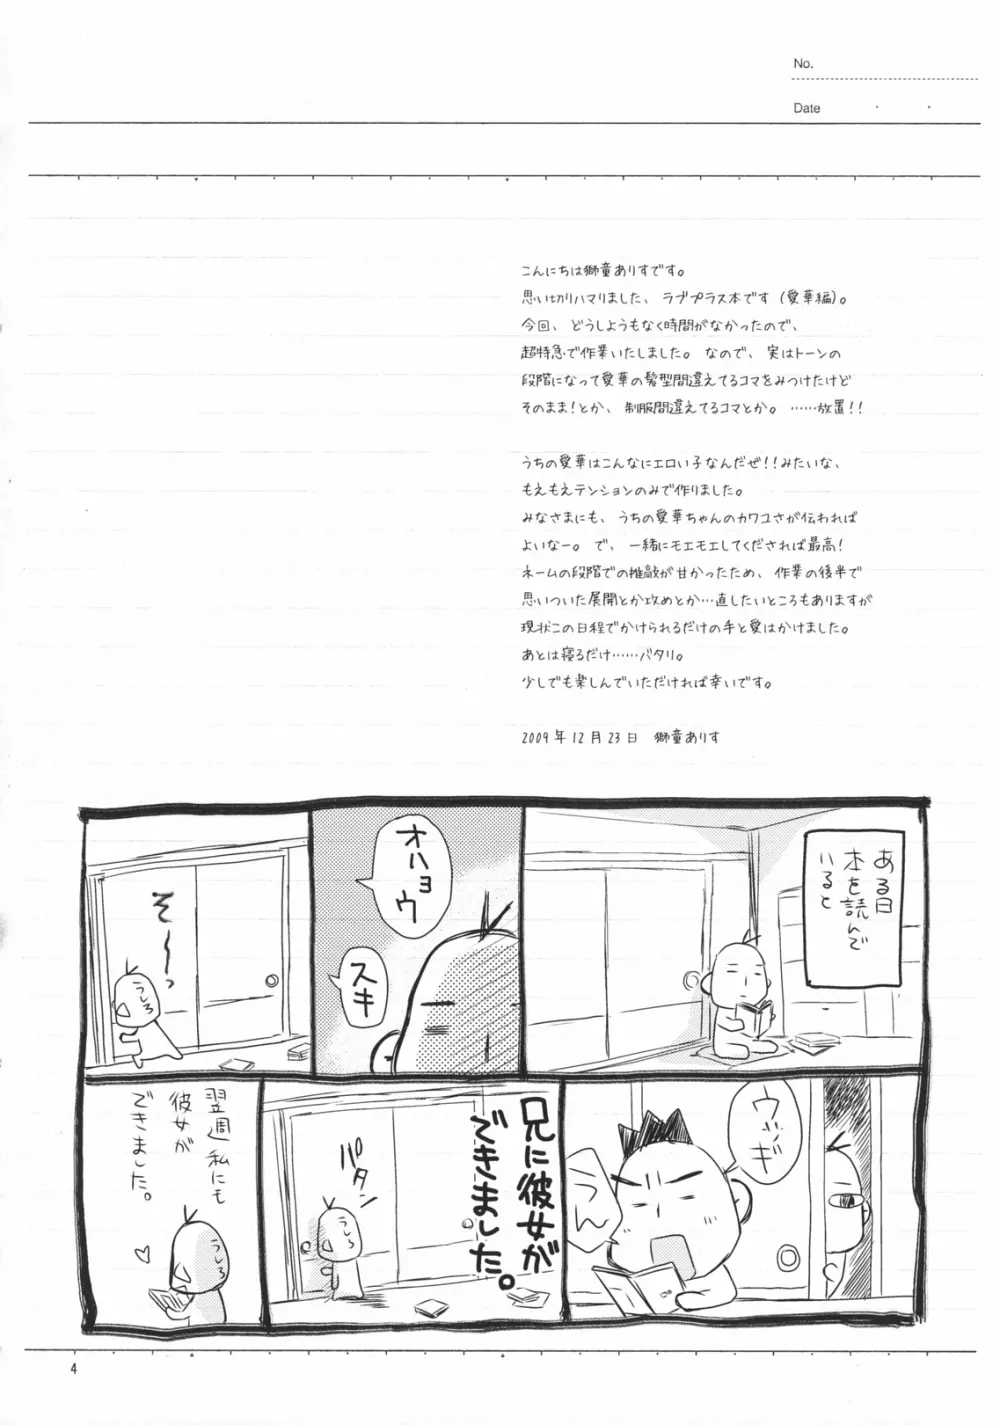 No.
Date
こんにちは獅童ありすです。
思い切りハマりました、ラブプラス本です（愛華編）。
今回、どうしようもなく時間がなかったので、
超特急で作業いたしました。なので、実はトーンの
段階になって愛華の髪型間違えてるコマをみつけたけど
そのまま！とか、制服間違えてるコマとか。……放置！！
うちの愛華はこんなにエロい子なんだぜ！！みたいな、
もえもえテンションのみで作りました。
みなさまにも、うちの愛華ちゃんのカワユさが伝われば
よいなー。で、一緒にモエモエしてくだされば最高！
ネームの段階での推敲が甘かったため、作業の後半で
思いついた展開とか攻めとか…直したいところもありますが
現状この日程でかけられるだけの手と愛はかけました。
あとは寝るだけ……バタリ。
少しでも楽しんでいただければ幸いです。
2009年12月23日 獅童ありす
ある日
本を読んで
いると
オハョウ
スキ
そ〜っ
うしろ
ウッギ
うん
兄に彼女が
できました。
パタン
うしろ
翌週 私にも
彼女が
できました。
うしろ
4